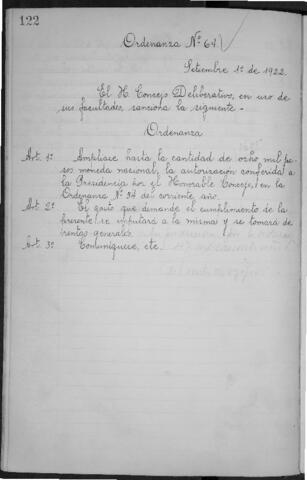 122
Ordenanza Nº 64
Setiembre 1º de 1922.
El H. Concejo Deliberativo, en uso de
sus facultades, sanciona la siguiente -
Ordenanza
Art. 1º Ampliase hasta la cantidad de ocho mil pe
sos moneda nacional, la autorización conferida a
la Presidencia por el Honorable Concejo, en la
Ordenanza Nº 54 del corriente año.
Art. 2º El gasto que demande el cumplimiento de la
presente se imputará a la misma y se tomará de
rentas generales.
Art. 3º Comuníquese, etc.